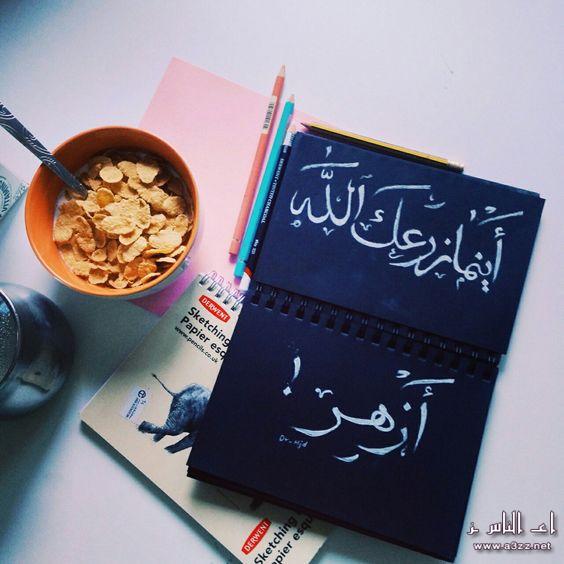 أَينما زرعك الله
أَزهِر !
DERWENT
Sketching
Papier esqu
www.pencils.co.uk
DERWENT
Sketching
Papier esqui
www.a3zz.net